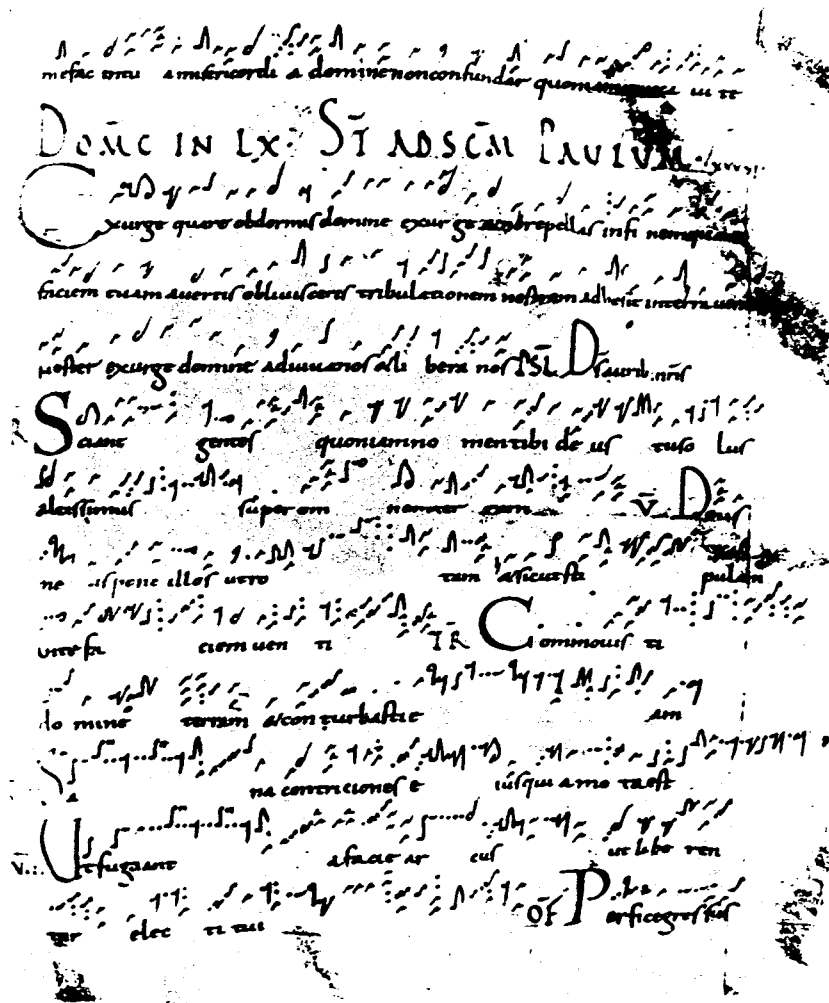 me fac in tu a misericordi a domine non confundar quoniam in te
DOMC IN LX ST AD SCM PAULUM
Exurge quare obdormis domine exur ge repellas in fi nem
faciem tuam avertis oblivisceris tribulationem nostram adhesit in terra
noster exurge domine adiuva nos & li bera nos PSL Ds aurib nris
Sciant gentes quoniam no men tibi de us tu so lus
altissimus super om nem ter ram V Deus
ne us pone illos ut ro tam & sicut sti pulam
ante fa ciem uen ti TR Commouis ti
do mine terram & conturbasti e am
Sa na contriciones e ius qui a mo ta est
V Ut fugiant a facie ar cus ut libe ren
tur elec ti tui OF Perfice gressus